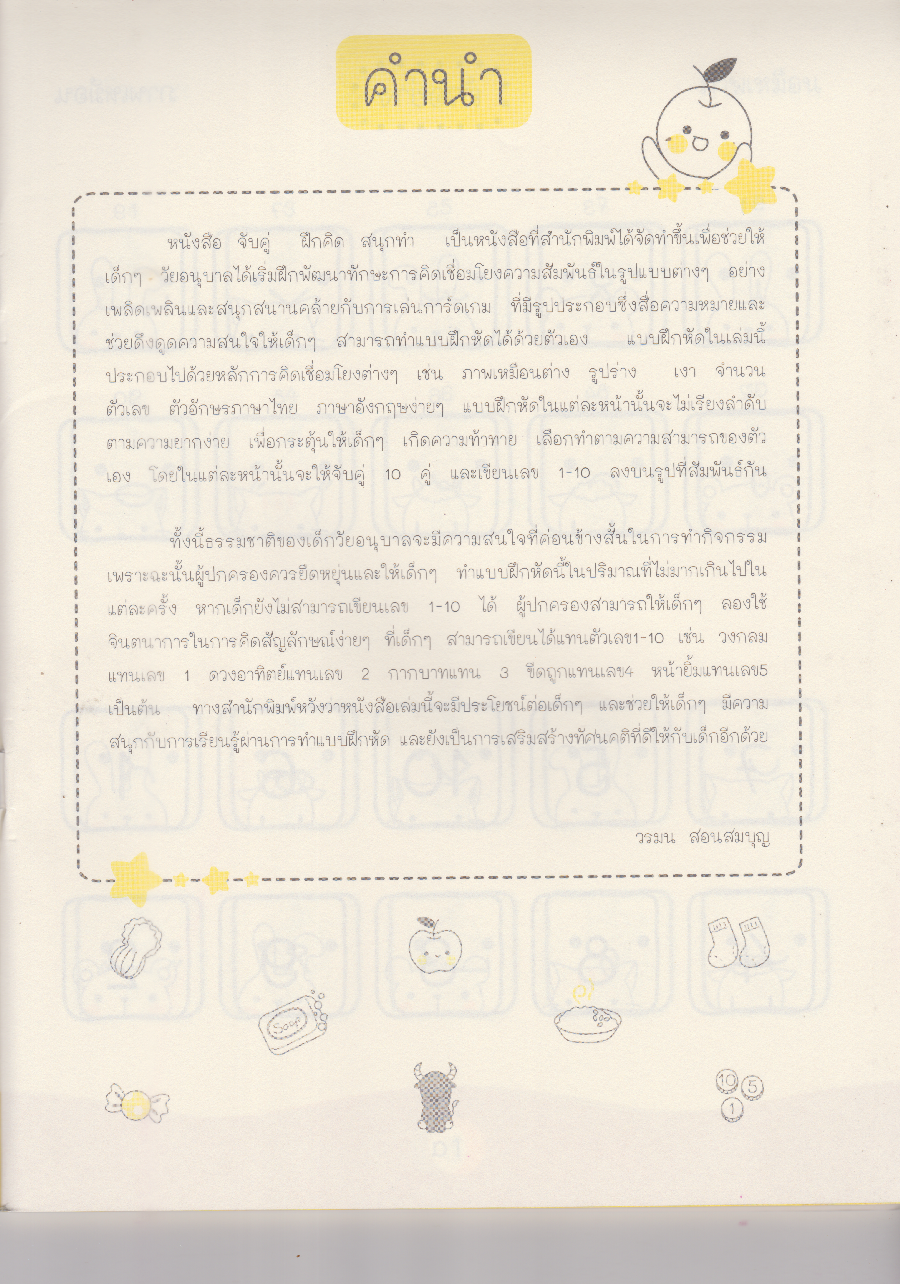 คำนำ
หนังสือ จับคู่ ฝึกคิด สนุกทำ เป็นหนังสือที่สำนักพิมพ์ได้จัดทำขึ้นเพื่อช่วยให้
เด็กๆ วัยอนุบาลได้เริ่มฝึกพัฒนาทักษะการคิดเชื่อมโยงความสัมพันธ์ในรูปแบบต่างๆ อย่าง
เพลิดเพลินและสนุกสนานคล้ายกับการเล่นการ์ดเกม ที่มีรูปประกอบซึ่งสื่อความหมายและ
ช่วยดึงดูดความสนใจให้เด็กๆ สามารถทำแบบฝึกหัดได้ด้วยตัวเอง แบบฝึกหัดในเล่มนี้
ประกอบไปด้วยหลักการคิดเชื่อมโยงต่างๆ เช่น ภาพเหมือนต่าง รูปร่าง เงา จำนวน
ตัวเลข ตัวอักษรภาษาไทย ภาษาอังกฤษง่ายๆ แบบฝึกหัดในแต่ละหน้านั้นจะไม่เรียงลำดับ
ตามความยากง่าย เพื่อกระตุ้นให้เด็กๆ เกิดความท้าทาย เลือกทำตามความสามารถของตัว
เอง โดยในแต่ละหน้านั้นจะให้จับคู่ 10 คู่ และเขียนเลข 1-10 ลงบนรูปที่สัมพันธ์กัน
ทั้งนี้ธรรมชาติของเด็กวัยอนุบาลจะมีความสนใจที่ค่อนข้างสั้นในการทำกิจกรรม
เพราะฉะนั้นผู้ปกครองควรยืดหยุ่นและให้เด็กๆ ทำแบบฝึกหัดนี้ในปริมาณที่ไม่มากเกินไปใน
แต่ละครั้ง หากเด็กยังไม่สามารถเขียนเลข 1-10 ได้ ผู้ปกครองสามารถให้เด็กๆ ลองใช้
จินตนาการในการคิดสัญลักษณ์ง่ายๆ ที่เด็กๆ สามารถเขียนได้แทนตัวเลข1-10 เช่น วงกลม
แทนเลข 1 ดวงอาทิตย์แทนเลข 2 กากบาทแทน 3 ขีดถูกแทนเลข4 หน้ายิ้มแทนเลข5
เป็นต้น ทางสำนักพิมพ์หวังว่าหนังสือเล่มนี้จะมีประโยชน์ต่อเด็กๆ และช่วยให้เด็กๆ มีความ
สนุกกับการเรียนรู้ผ่านการทำแบบฝึกหัด และยังเป็นการเสริมสร้างทัศนคติที่ดีให้กับเด็กอีกด้วย
วรมน สอนสมบุญ
Soap
10 5
1